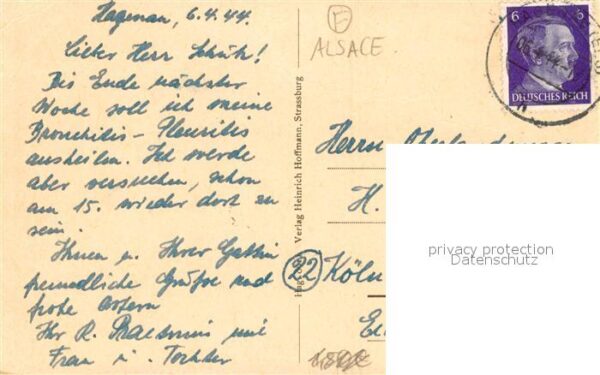 Hagenau, 6.4.44.
Lieber Herr Schütz!
Bis Ende nächster
Woche soll ich meine
Bronchitis - Pleuritis
ausheilen. Ich werde
aber versuchen, schon
am 15. wieder dort zu
sein.
Ihnen u. Ihrer Gattin
freundliche Grüße und
frohe Ostern
Ihr R. mit
Frau u. Tochter
F
ALSACE.
Verlag Heinrich Hoffmann, Strassburg
6
6
DEUTSCHES REICH
Herrn
H.
22 Köln
privacy protection
Datenschutz